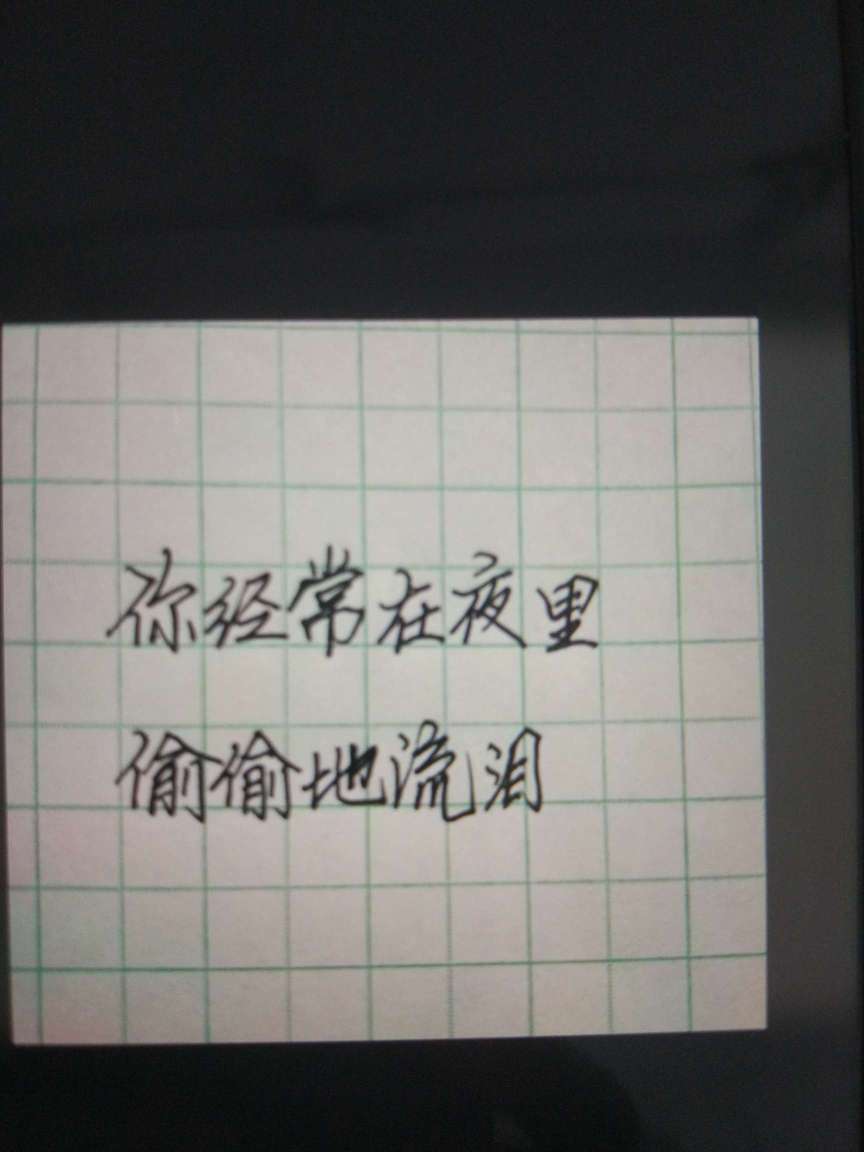 你经常在夜里
偷偷地流泪